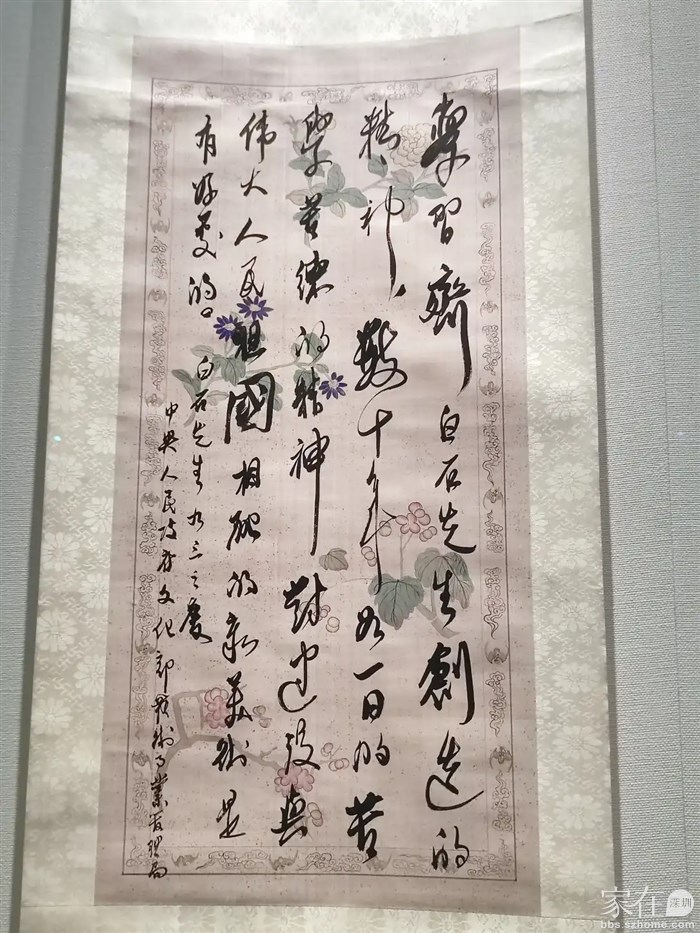 學習齊白石先生創造的
精神，數十年如一日的苦
學苦練的精神對建設與
伟大人民祖國相配的新美術是
有好處的。
白石先生九三之慶
中央人民政府文化部藝術事業管理局
家在深圳
bbs.szhome.com